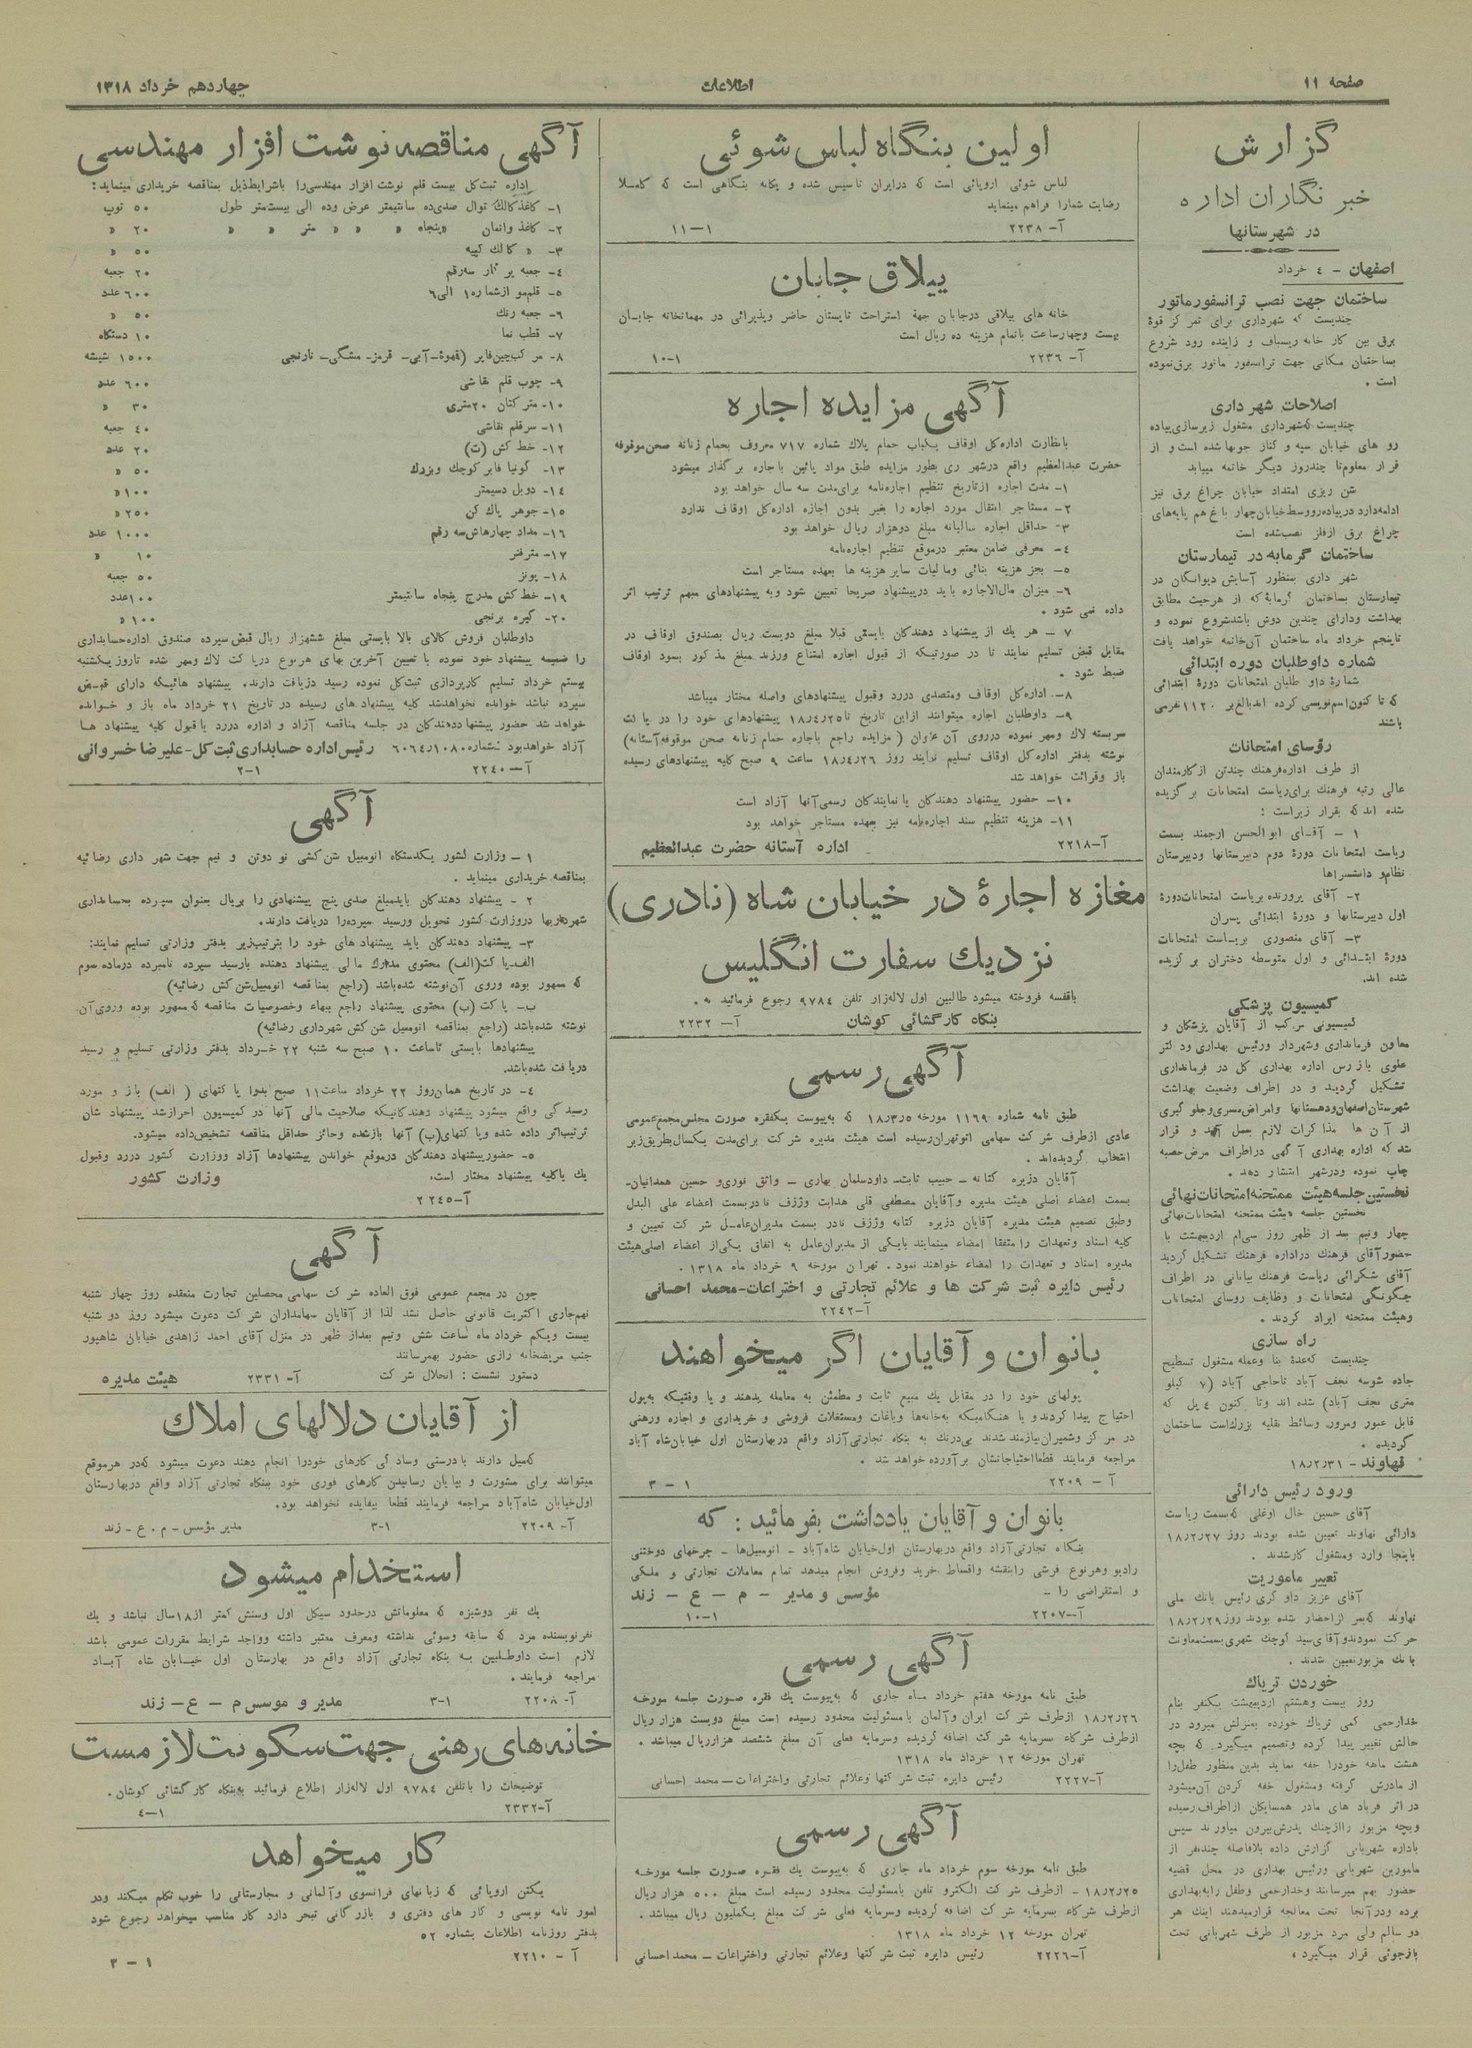 صفحه ۱۱
اطلاعات
چهاردهم خرداد ۱۳۱۸
گزارش
خبر نگاران اداره
در شهرستانها
اصفهان - ٤ خرداد
ساختمان جهت نصب ترانسفورماتور
چندیست که شهرداری برای تمرکز قوهٔ
برق بین کارخانه ریسباف و زاینده رود شروع
بساختمان مکانی جهت ترانسفور ماتور برق نموده
است .
اصلاحات شهرداری
چندیست که شهرداری مشغول زیرسازی پیاده
رو های خیابان سپه و کنار جویها شده است و از
قرار معلوم تا چندروز دیگر خاتمه مییابد
شن ریزی امتداد خیابان چراغ برق نیز
ادامه دارد در پیاده رو وسط خیابان چهار باغ هم پایه های
چراغ برق از فلز نصب شده است
ساختمان گرمابه در تیمارستان
شهرداری بمنظور آسایش دیوانگان در
تیمارستان بساختمان گرمابهٔ که از هر حیث مطابق
بهداشت ودارای چندین دوش باشد شروع نموده و
تا پنجم خرداد ماه ساختمان آن خاتمه خواهد یافت
شماره داوطلبان دوره ابتدائی
شمارهٔ داو طلبان امتحانات دورهٔ ابتدائی
که تا کنون اسم نویسی کرده اند بالغ بر ۱۱۲۰ نفر می
باشند
رؤسای امتحانات
از طرف اداره فرهنگ چند تن از کارمندان
عالی رتبه فرهنگ برای ریاست امتحانات برگزیده
شده اند که بقرار زیر است :
۱ - آقای ابوالحسن ارجمند بسمت
ریاست امتحانات دورهٔ دوم دبیرستانها ودبیرستان
نظام و دانشسراها
۲- آقای پرورنده بریاست امتحانات دورهٔ
اول دبیرستانها و دورهٔ ابتدائی پسران
۳- آقای منصوری بریاست امتحانات
دورهٔ ابتدائی و اول متوسطه دختران برگزیده
شده اند.
کمیسیون پزشکی
کمیسیونی مرکب از آقایان پزشکان و
معاون فرمانداری و شهردار ورئیس بهداری ودکتر
علوی بازرس اداره بهداری کل در فرمانداری
تشکیل گردید و در اطراف وضعیت بهداشت
شهرستان اصفهان و دهستانها وامراض مسری و جلوگیری
از آن ها مذاکرات لازم بعمل آمد و قرار
شد که اداره بهداری آگهی در اطراف مرض حصبه
چاپ نموده و در شهر انتشار دهد.
نخستین جلسه هیئت ممتحنه امتحانات نهائی
نخستین جلسه هیئت ممتحنه امتحانات نهائی
چهار ونیم بعد از ظهر روز سی ام اردیبهشت با
حضور آقای فرهنگ در اداره فرهنگ تشکیل گردید
آقای شکرائی ریاست فرهنگ بیاناتی در اطراف
چگونگی امتحانات و وظایف روسای امتحانات
وهیئت ممتحنه ایراد کردند .
راه سازی
چندیست که عدهٔ بنا وعمله مشغول تسطیح
جاده شوسه نجف آباد تا حاجی آباد (۷ کیلو
متری نجف آباد) شده اند وتا کنون ٤ پل که
قابل عبور ومرور وسائط نقلیه بزرگ است ساختمان
گردیده .
نهاوند - ۱۸٫۲٫۳۱
ورود رئیس دارائی
آقای حسین خال اوغلی که بسمت ریاست
دارائی نهاوند تعیین شده بودند روز ۱۸٫۲٫۲۷
باینجا وارد ومشغول کار شدند .
تغییر ماموریت
آقای عزیز داوگری رئیس بانک ملی
نهاوند که بمرکز احضار شده بودند روز ۱۸٫۲٫۲۹
حرکت نمودند و آقای سید کوچک شهری بسمت معاونت
بانک مزبور تعیین شدند .
خوردن تریاک
روز بیست وهشتم اردیبهشت یکنفر بنام
خدارحمی کمی تریاک خورده بمنزلش میرود در
حالش تغییر پیدا کرده وتصمیم میگیرد که بچه
هشت ماهه خود را خفه نماید بدین منظور طفل را
از مادرش گرفته ومشغول خفه کردن آن میشود
در اثر فریاد های مادر همسایگان از اطراف رسیده
وبچه مزبور را از چنگ پدرش بیرون میاورند سپس
باداره شهربانی گزارش داده بلافاصله چندنفر از
مامورین شهربانی و رئیس بهداری در محل قضیه
حضور بهم میرسانند وخدارحمی وطفل را به بهداری
برده ودر آنجا تحت معالجه قرار میدهند اینک هر
دو سالم ولی مرد مزبور از طرف شهربانی تحت
بازجوئی قرار میگیرد .
اولین بنگاه لباس شوئی
لباس شوئی اروپائی است که در ایران تاسیس شده و یگانه بنگاهی است که کاملا
رضایت شما را فراهم مینماید
آ- ۲۲۳۸ ۱-۱۱
ییلاق جابان
خانه های ییلاقی در جابان جهة استراحت تابستان حاضر وپذیرائی در مهمانخانه جابان
بیست وچهار ساعت باتمام هزینه ده ریال است
آ- ۲۲۳٦ ۱-۱۰
آگهی مزایده اجاره
با نظارت اداره کل اوقاف یکباب حمام پلاک شماره ۷۱۷ معروف بحمام زنانه صحن موقوفه
حضرت عبدالعظیم واقع در شهر ری بطور مزایده طبق مواد پائین با جاره برگذار میشود
۱- مدت اجاره از تاریخ تنظیم اجاره نامه برای مدت سه سال خواهد بود
۲- مستاجر انتقال مورد اجاره را بغیر بدون اجازه اداره کل اوقاف ندارد
۳- حداقل اجاره سالیانه مبلغ دوهزار ریال خواهد بود
٤- معرفی ضامن معتبر در موقع تنظیم اجاره نامه
٥- بجز هزینه بنائی ومالیات سایر هزینه ها بعهده مستاجر است
٦- میزان مال الاجاره باید در پیشنهاد صریحا تعیین شود وبه پیشنهادهای مبهم ترتیب اثر
داده نمی شود .
۷ - هر یک از پیشنهاد دهندگان بایستی قبلا مبلغ دویست ریال بصندوق اوقاف در
مقابل قبض تسلیم نمایند تا در صورتیکه از قبول اجاره امتناع ورزند مبلغ مذکور بسود اوقاف
ضبط شود .
۸- اداره کل اوقاف ومتصدی در رد وقبول پیشنهادهای واصله مختار میباشد
۹- داوطلبان اجاره میتوانند از این تاریخ تا ۱۸٫٤٫۲٥ پیشنهادهای خود را در پاکت
سربسته لاک ومهر نموده در روی آن عنوان (مزایده راجع باجاره حمام زنانه صحن موقوفه آستانه)
نوشته بدفتر اداره کل اوقاف تسلیم نمایند روز ۱۸٫٤٫۲٦ ساعت ۹ صبح کلیه پیشنهادهای رسیده
باز وقرائت خواهد شد
۱۰- حضور پیشنهاد دهندگان یا نمایندگان رسمی آنها آزاد است
۱۱- هزینه تنظیم سند اجاره نامه نیز بعهده مستاجر خواهد بود
آ- ۲۲۱۸ اداره آستانه حضرت عبدالعظیم
مغازه اجارهٔ در خیابان شاه (نادری)
نزدیک سفارت انگلیس
باقفسه فروخته میشود طالبین اول لاله زار تلفن ۹۷۸٤ رجوع فرمائید به.
بنگاه کارگشائی کوشان آ- ۲۲۳۲
آگهی رسمی
طبق نامه شماره ۱۱٦۹ مورخه ۱۸٫۳٫٥ که به پیوست یکفقره صورت مجلس مجمع عمومی
عادی از طرف شرکت سهامی اتو تهران رسیده است هیئت مدیره شرکت برای مدت یکسال بطریق زیر
انتخاب گردیده اند .
آقایان دزیره کتانه - حبیب ثابت - داود سلمان بهاری - واثق نوری و حسین همدانیان-
بسمت اعضاء اصلی هیئت مدیره و آقایان مصطفی قلی هدایت وژزف نادر بسمت اعضاء علی البدل
وطبق تصمیم هیئت مدیره آقایان دزیره کتانه وژزف نادر بسمت مدیران عامل شرکت تعیین و
کلیه اسناد وتعهدات را متفقا امضاء مینمایند با یکی از مدیران عامل به اتفاق یکی از اعضاء اصلی هیئت
مدیره اسناد و تعهدات را امضاء خواهند نمود. تهران مورخه ۹ خرداد ماه ۱۳۱۸.
رئیس دایره ثبت شرکت ها و علائم تجارتی و اختراعات-محمد احسانی
آ-۲۲٤۲
بانوان و آقایان اگر میخواهند
پولهای خود را در مقابل یک منبع ثابت و مطمئن به معامله بدهند و یا وقتیکه به پول
احتیاج پیدا کردند و یا هنگامیکه به خانه ها وباغات ومستغلات فروشی و خریداری و اجاره ورهنی
در مرکز وشمیران نیازمند شدند بی درنگ به بنگاه تجارتی آزاد واقع در بهارستان اول خیابان شاه آباد
مراجعه فرمایند قطعا احتیاجاتشان برآورده خواهد شد .
آ - ۲۲۰۹ ۱ - ۳
بانوان و آقایان یادداشت بفرمائید : که
بنگاه تجارتی آزاد واقع در بهارستان اول خیابان شاه آباد - اتومبیل ها - چرخهای دوختنی
رادیو وهر نوع فرشی را بنقشه واقساط خرید وفروش انجام میدهد تمام معاملات تجارتی و ملکی
و استقراضی را - مؤسس و مدیر - م - ع - زند
آ-۲۲۰۷ ۱-۱۰
آگهی رسمی
طبق نامه مورخه هفتم خرداد ماه جاری که به پیوست یک فقره صورت جلسه مورخه
۱۸٫۲٫۲٦ از طرف شرکت ایران وآلمان با مسئولیت محدود رسیده است مبلغ دویست هزار ریال
از طرف شرکاء سرمایه شرکت اضافه گردیده وسرمایه فعلی آن مبلغ ششصد هزار ریال میباشد .
تهران مورخه ۱۲ خرداد ماه ۱۳۱۸
آ-۲۲۲۷ رئیس دایره ثبت شرکتها وعلائم تجارتی واختراعات - محمد احسانی
آگهی رسمی
طبق نامه مورخه سوم خرداد ماه جاری که به پیوست یک فقره صورت جلسه مورخه
۱۸٫۲٫۲٥ - از طرف شرکت الکترو تلفن بامسئولیت محدود رسیده است مبلغ ٥۰۰ هزار ریال
از طرف شرکاء بسرمایه شرکت اضافه گردیده وسرمایه فعلی شرکت مبلغ یکملیون ریال میباشد .
تهران مورخه ۱۲ خرداد ماه ۱۳۱۸
آ-۲۲۲٦ رئیس دایره ثبت شرکتها وعلائم تجارتی واختراعات - محمد احسانی
آگهی مناقصه نوشت افزار مهندسی
اداره ثبت کل بیست قلم نوشت افزار مهندسی را باشرایط ذیل بمناقصه خریداری مینماید :
۱- کاغذ کالک توال صدی ده سانتیمتر عرض وده الی بیست متر طول ٥۰ توپ
۲- کاغذ واتمان » پنجاه » » » متر » » ۲۰ »
۳- » کالک کپیه ٥۰ »
٤- جعبه پرگار سه رقم ۲۰ جعبه
٥- قلم مو از شماره ۱ الی ٦ ٦۰۰ عدد
٦- جعبه رنگ ٥۰ »
۷- قطب نما ۱۰ دستگاه
۸- مرکب چین فابر (قهوهٔ - آبی - قرمز - مشگی - نارنجی ۱٥۰۰ شیشه
۹- چوب قلم نقاشی ٦۰۰ عدد
۱۰- متر کتان ۲۰ متری ۳۰ »
۱۱- سرقلم نقاشی ٤۰ جعبه
۱۲- خط کش (ت) ۲۰ عدد
۱۳- گونیا فابر کوچک و بزرگ ٥۰ »
۱٤- دوبل دسیمتر ۱۰۰ »
۱٥- جوهر پاک کن ۲٥۰ »
۱٦- مداد چهارهاش سه رقم ۱۰۰۰ عدد
۱۷- متر فنر ۱۰ »
۱۸- پونز ٥۰ جعبه
۱۹- خط کش مدرج پنجاه سانتیمتر ۱۰۰ عدد
۲۰- گیره برنجی ۱۰۰ »
داوطلبان فروش کالای بالا بایستی مبلغ ششهزار ریال قبض سپرده صندوق اداره حسابداری
را ضمیمه پیشنهاد خود نموده با تعیین آخرین بهای هر نوع در پاکت لاک ومهر شده تا روز یکشنبه
بیستم خرداد تسلیم کارپردازی ثبت کل نموده رسید دریافت دارند. پیشنهاد هائیکه دارای قبض
سپرده نباشد خوانده نخواهد شد کلیه پیشنهاد های رسیده در تاریخ ۲۱ خرداد ماه باز و خوانده
خواهد شد حضور پیشنهاد دهندگان در جلسه مناقصه آزاد و اداره در رد یا قبول کلیه پیشنهاد ها
آزاد خواهد بود شماره ٦۰٦٤٫۱۰۸۰ رئیس اداره حسابداری ثبت کل - علیرضا خسروانی
آ-۲۲٤۰ ۱-۲
آگهی
۱ - وزارت کشور یکدستگاه اتومبیل شن کشی نو دوتن و نیم جهت شهرداری رضائیه
بمناقصه خریداری مینماید .
۲ - پیشنهاد دهندگان باید مبلغ صدی پنج پیشنهادی را بریال بعنوان سپرده بحسابداری
شهرداریها در وزارت کشور تحویل ورسید سپرده را دریافت دارند.
۳- پیشنهاد دهندگان باید پیشنهاد های خود را بترتیب زیر بدفتر وزارتی تسلیم نمایند:
الف- پاکت (الف) محتوی مدارک مالی پیشنهاد دهنده بارسید سپرده نامبرده در ماده سوم
که ممهور بوده وروی آن نوشته شده باشد (راجع بمناقصه اتومبیل شن کش رضائیه)
ب- پاکت (ب) محتوی پیشنهاد راجع ببهاء وخصوصیات مناقصه که ممهور بوده وروی آن
نوشته شده باشد (راجع بمناقصه اتومبیل شن کش شهرداری رضائیه)
پیشنهادها بایستی تا ساعت ۱۰ صبح سه شنبه ۲۲ خرداد بدفتر وزارتی تسلیم و رسید
دریافت شده باشد.
٤- در تاریخ همان روز ۲۲ خرداد ساعت ۱۱ صبح بدوا پاکتهای (الف) باز و مورد
رسیدگی واقع میشود پیشنهاد دهندگانیکه صلاحیت مالی آنها در کمیسیون احراز شد پیشنهاد شان
ترتیب اثر داده شده وپاکتهای (ب) آنها باز شده وحائز حداقل مناقصه تشخیص داده میشود.
٥- حضور پیشنهاد دهندگان در موقع خواندن پیشنهادها آزاد ووزارت کشور در رد وقبول
یک یا کلیه پیشنهاد مختار است. وزارت کشور
آ-۲۲٤٥
آگهی
چون در مجمع عمومی فوق العاده شرکت سهامی محصلین تجارت منعقده روز چهار شنبه
نهم جاری اکثریت قانونی حاصل نشد لذا از آقایان سهامداران شرکت دعوت میشود روز دو شنبه
بیست ویکم خرداد ماه ساعت شش ونیم بعداز ظهر در منزل آقای احمد زاهدی خیابان شاهپور
جنب مریضخانه رازی حضور بهمرسانند
دستور نشست : انحلال شرکت آ- ۲۳۳۱ هیئت مدیره
از آقایان دلالهای املاک
که میل دارند با درستی وسادگی کارهای خود را انجام دهند دعوت میشود که در هر موقع
میتوانند برای مشورت و بپایان رسانیدن کارهای فوری خود ببنگاه تجارتی آزاد واقع در بهارستان
اول خیابان شاه آباد مراجعه فرمایند قطعا بیفایده نخواهد بود.
آ- ۲۲۰۹ ۱-۳ مدیر مؤسس - م . ع - زند
استخدام میشود
یک نفر دوشیزه که معلوماتش در حدود سیکل اول وسنش کمتر از ۱۸ سال نباشد و یک
نفر نویسنده مرد که سابقه وسوئی نداشته ومعرف معتبر داشته وواجد شرایط مقررات عمومی باشد
لازم است داوطلبین به بنگاه تجارتی آزاد واقع در بهارستان اول خیابان شاه آباد
مراجعه فرمایند .
آ- ۲۲۰۸ ۱-۳ مدیر و موسس م - ع - زند
خانه های رهنی جهت سکونت لازمست
توضیحات را با تلفن ۹۷۸٤ اول لاله زار اطلاع فرمائید به بنگاه کارگشائی کوشان .
آ-۲۳۳۲ ۱-٤
کار میخواهد
یکتن اروپائی که زبانهای فرانسوی وآلمانی و مجارستانی را خوب تکلم میکند ودر
امور نامه نویسی و کار های دفتری و بازرگانی تبحر دارد کار مناسب میخواهد رجوع شود
بدفتر روزنامه اطلاعات بشماره ٥۲
آ - ۲۲۱۰ ۱ - ۳